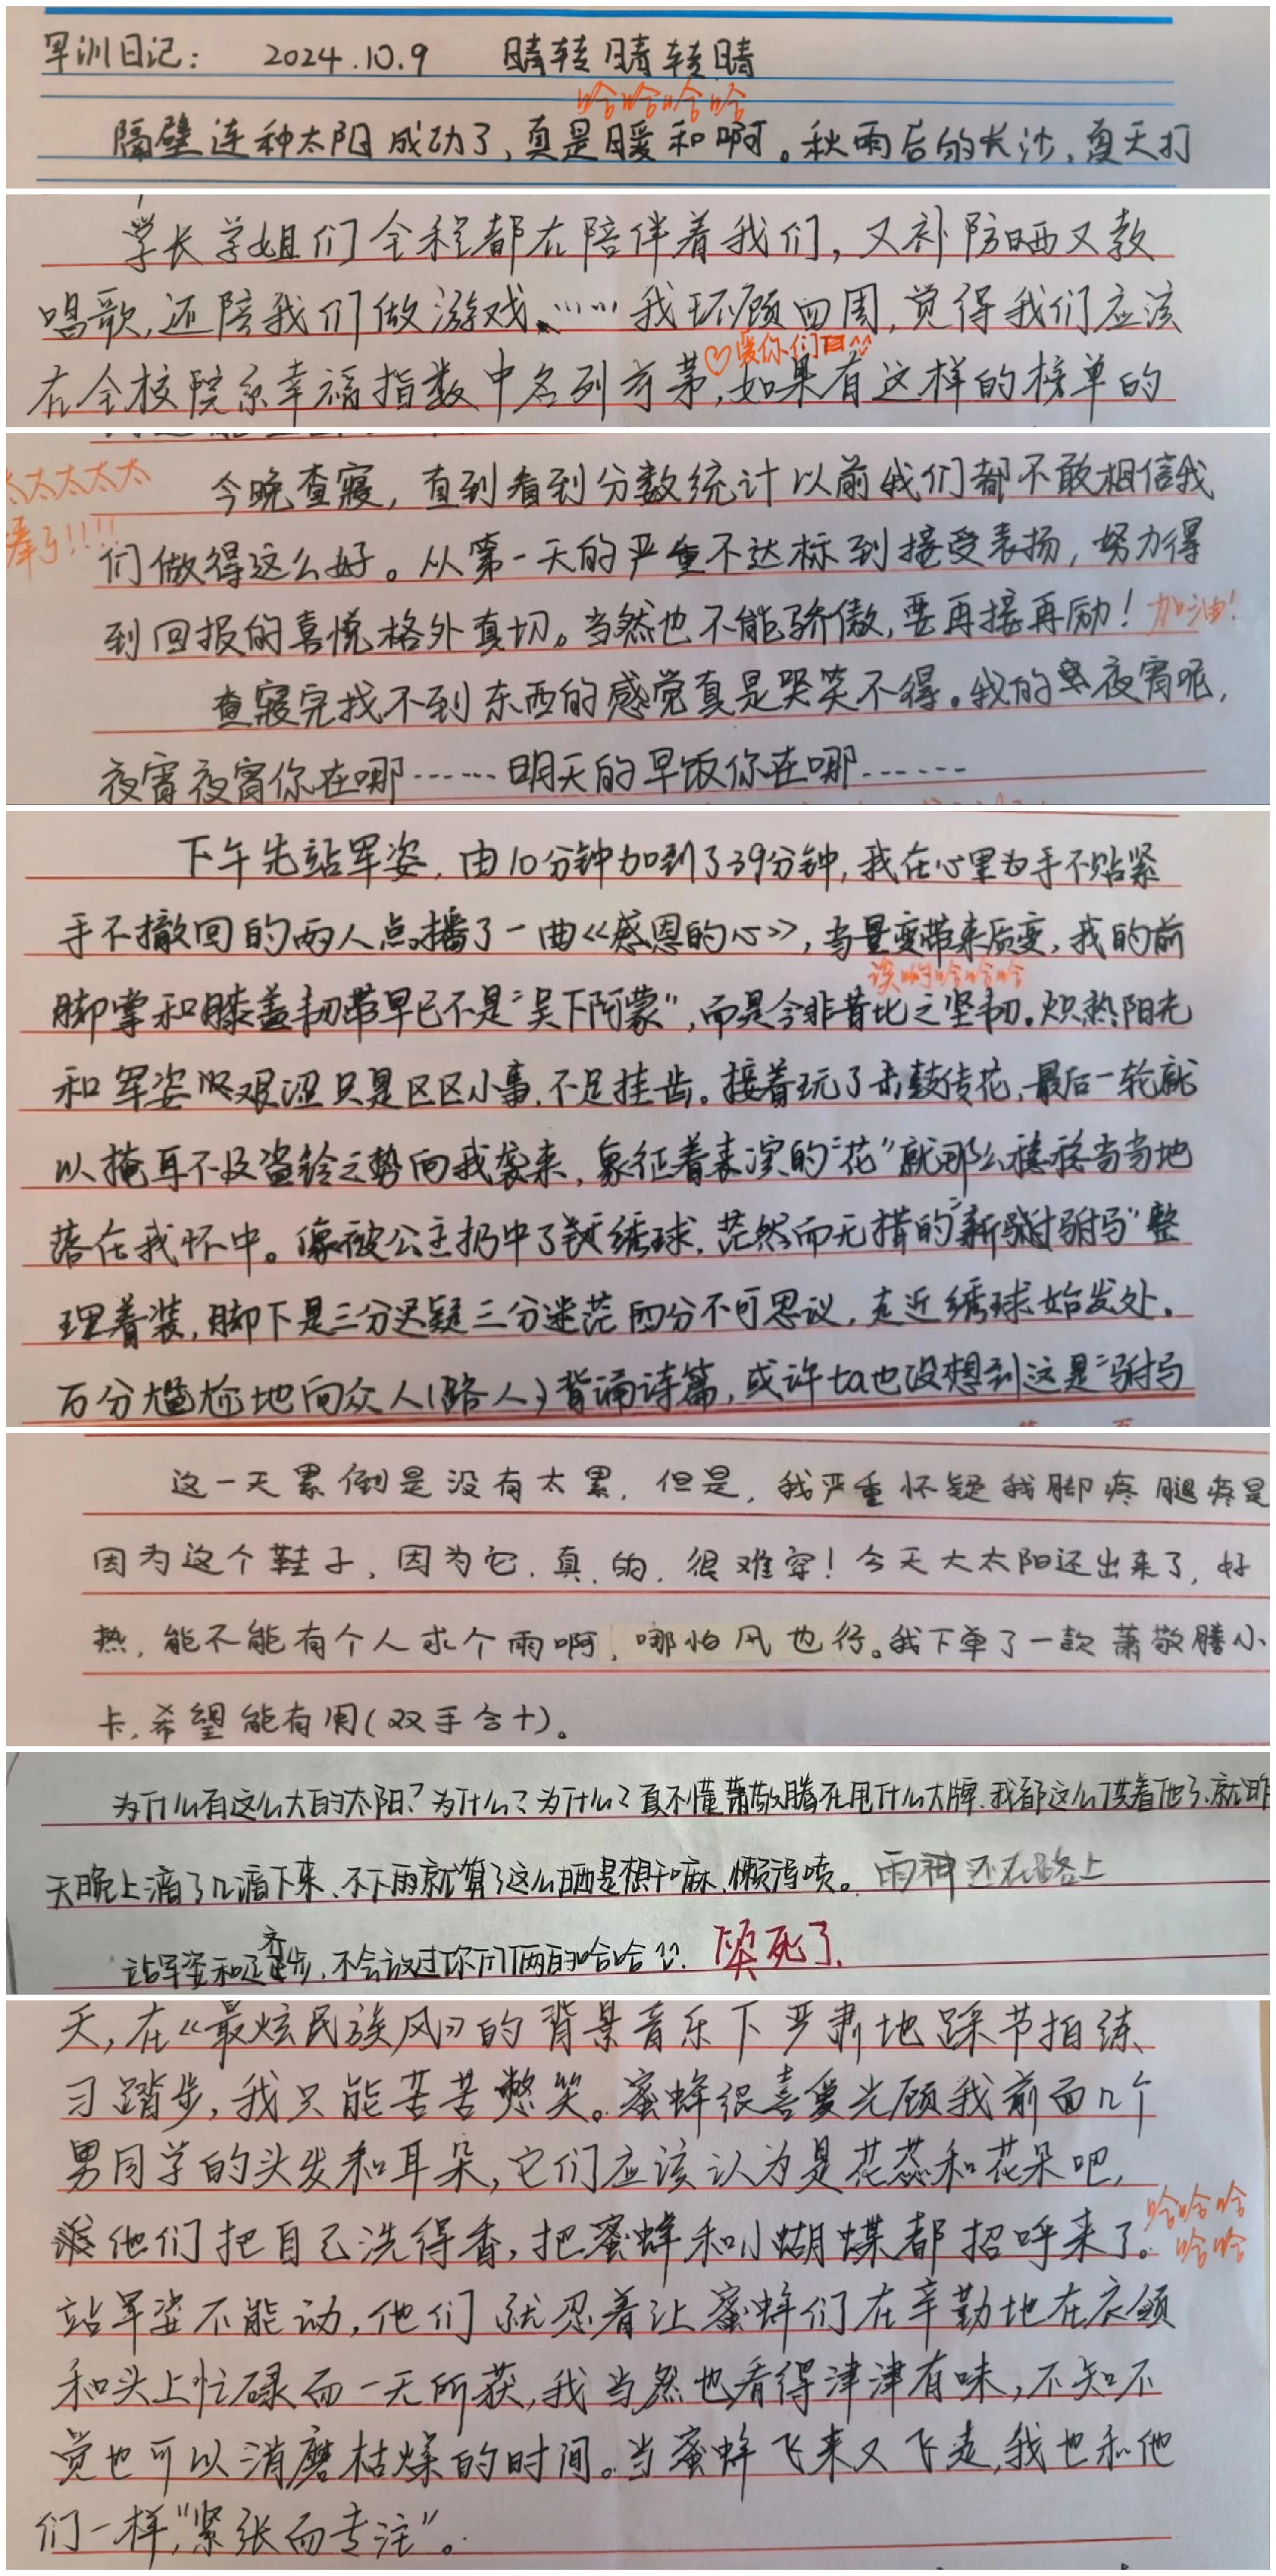 军训日记： 2024.10.9 晴转晴转晴
哈哈哈哈
隔壁连种太阳成功了，真是暖和啊。秋雨后的长沙，夏天打
学长学姐们全程都在陪伴着我们，又补防晒又教
唱歌，还陪我们做游戏……我环顾四周，觉得我们应该
♡爱你们
在全校院系幸福指数中名列前茅，如果有这样的榜单的
太太太太太
棒了!!!!
今晚查寝，直到看到分数统计以前我们都不敢相信我
们做得这么好。从第一天的严重不达标到接受表扬，努力得
到回报的喜悦格外真切。当然也不能骄傲，要再接再励！加油！
查寝完找不到东西的感觉真是哭笑不得。我的夜宵呢，
夜宵夜宵你在哪……明天的早饭你在哪……
下午先站军姿，由10分钟加到了39分钟，我在心里为手不贴紧
手不撤回的两人点播了一曲《感恩的心》，当量变带来质变，我的前
哈哈哈
脚掌和膝盖韧带早已不是“吴下阿蒙”，而是今非昔比之坚韧。炽热阳光
和军姿艰涩只是区区小事，不足挂齿。接着玩了击鼓传花，最后一轮就
以掩耳不及盗铃之势向我袭来，象征着表演的“花”就那么稳稳当当地
落在我怀中。像被公主扔中了绣球，茫然而无措的“新驸马”整
理着装，脚下是三分迟疑三分迷茫四分不可思议，走近绣球始发处。
百分尴尬地向众人(路人)背诵诗篇，或许ta也没想到这是“驸马
这一天累倒是没有太累，但是，我严重怀疑我脚疼腿疼是
因为这个鞋子，因为它，真，的，很难穿！今天大太阳还出来了，好
热，能不能有个人求个雨啊，哪怕风也行。我下单了一款萧敬腾小
卡，希望能有用(双手合十)。
为什么有这么大的太阳？为什么？为什么？真不懂萧敬腾在甩什么大牌，我都这么供着他了，就昨
天晚上滴了几滴下来，不下雨就算了这么晒是想干嘛，懒得喷。雨神还在路上
站军姿和正齐步，不会放过你们俩的哈哈 笑死了.
天，在《最炫民族风》的背景音乐下严肃地踩节拍练
习踏步，我只能苦苦憋笑。蜜蜂很喜爱光顾我前面几个
男同学的头发和耳朵，它们应该认为是花蕊和花朵吧，
他们把自己洗得香，把蜜蜂和小蝴蝶都招呼来了。哈哈哈
哈哈
站军姿不能动，他们就忍着让蜜蜂们在辛勤地在衣领
和头上忙碌而一无所获，我当然也看得津津有味，不知不
觉也可以消磨枯燥的时间。当蜜蜂飞来又飞走，我也和他
们一样，“紧张而专注”。